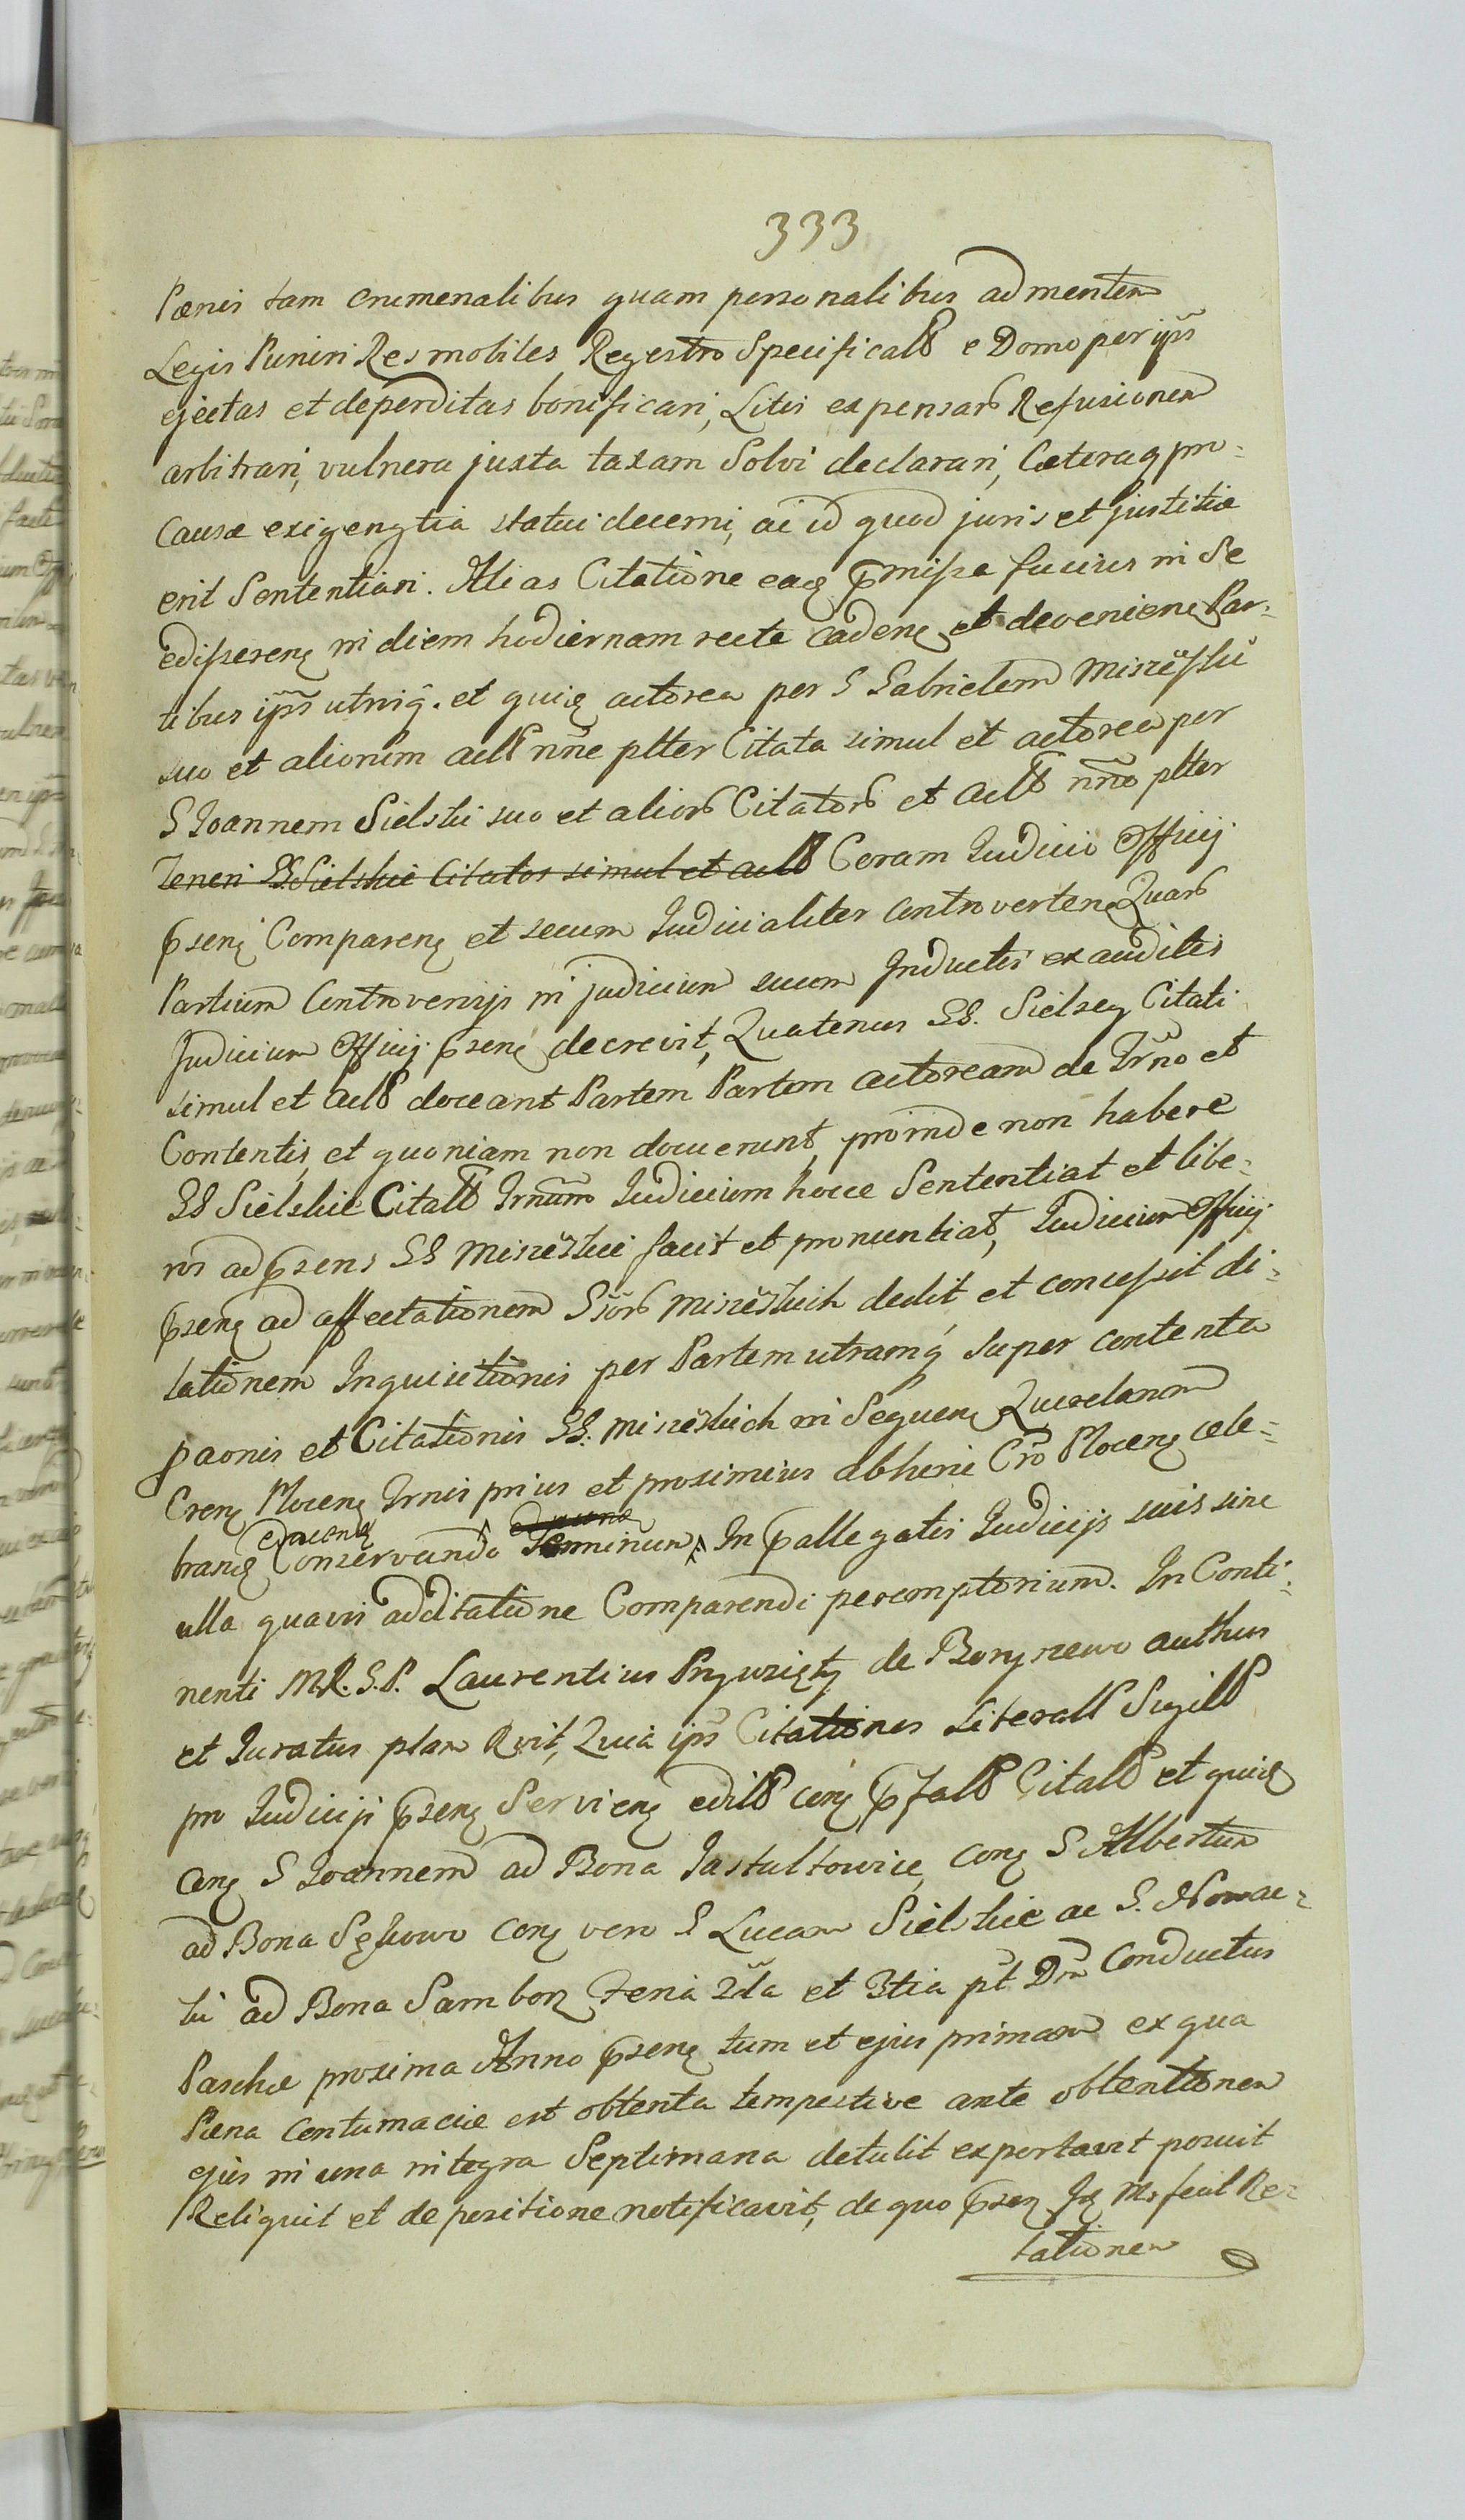 333
Pœnis tam crumenalibus quam personalibus ad mentem
Legis Puniri Res mobiles Regestro Specificatt e Domo per ipss
ejectas et deperditas bonificari, Litis expensar Refusionem
arbitrari, vulnera juxta taxam Solvi declarari, Cæteraq pro
Causæ exigengtia statui decerni, ac id quod juris et justitiæ
erit Sententiari. Alias Citatione eaq pmissa fusius in Se
edisseren in diem hodiernam recte caden et devenien Par-
tibus ipss utrisq. et quid actorea per S Gabrielem Miszewski
suo et aliorum actt nne pltter Citata simul et actorea per
S Joannem Sielski suo et alior Citator et actt nne pltter
Teneri SS Sielskie Citatos simul et actt Coram Judicio Officij
psen Comparen et secum Judicialiter controverten Quar
Partium Controversijs in judicium suum Inductis exauditis
Judicium Officij psens decrevit, Quatenus SS. Sielscy Citati
simul et actt doceant Partem Partem actoream de Trno et
Contentis, et quoniam non docuerunt, proinde non habere
SS Sielskie Citatt Trnum Judicium hocce Sententiat et libe-
ros ad psens SS Miszewskie facit et pronuntiat, Judicium Officij
psens ad affectationem Ssor Miszewskich dedit et concessit di-
lationem Inquisitionis per Partem utramq super contenta
paonis et Citationis SS. Miszewskich in Sequen Querelarum
Cren Plocen Trnis prius et proximius abhinc Cro Plocen cele-
bran Conservando Terminum In pallegatis Judicijs suis sine
ulla quavis adcitatione Comparendi peremptorium. In Conti-
nenti M.R. S.P. Laurentius Przywzięty de Boryszewo authus
et Juratus plam Rvit, Quia ipse Citationes Literatt Sigill
pro Judicij psen Servien edill con pfatt Citatt et quid
con S Joannem ad Bona Jastultowice, con S Albertum
ad Bona Sękowo con vero S Lucam Sielskie ac S. Nowac-
ki ad Bona Samborz Feria 2da et 3tia pt Dm Conductus
Paschæ proxima Anno psen tum et ejus primam ex qua
Pœna Contumaciæ est obtenta tempestive ante obtentionem
ejus in una integra Septimana detulit exportavit posuit
Reliquit et de positione notificavit, de quo psen Ja M. fecit Re-
lationem